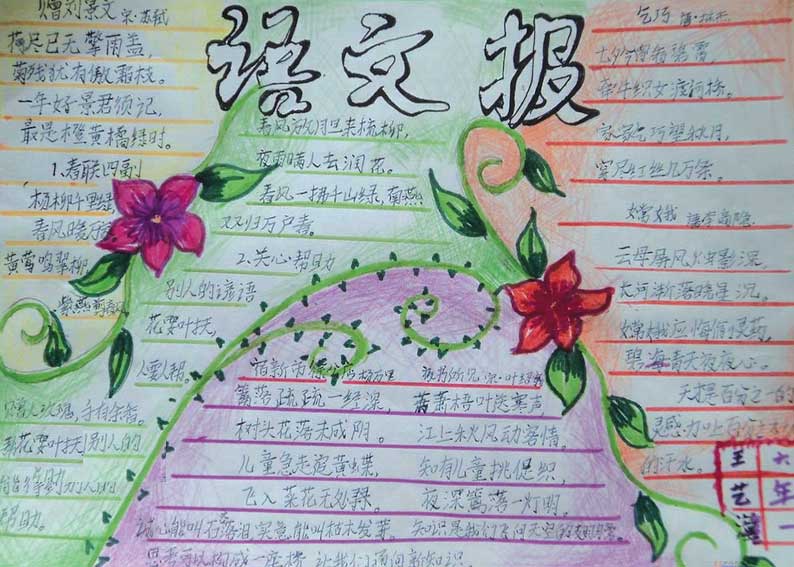 语文报
赠刘景文 宋·苏轼
荷尽已无擎雨盖,
菊残犹有傲霜枝。
一年好景君须记,
最是橙黄橘绿时。
1.春联四副
杨柳千里绿
春风暖万
黄莺鸣翠柳
紫燕剪春风
夜雨瞒人去润花。
春风一拂千山绿,南燕
又归万户春。
2.关心帮助
别人的谚语
花要叶扶,
人要人帮。
宿新市徐公店 杨万里
篱落疏疏一径深,
树头花落未成阴。
儿童急走追黄蝶,
飞入菜花无处寻。
夜书所见 宋·叶绍翁
萧萧梧叶送寒声
江上秋风动客情。
知有儿童挑促织,
夜深篱落一灯明。
诚心能叫石落泪,实意能叫枯木发芽。知识是我们飞向天空的
思考可以构成一座桥,让我们通向新知识。
乞巧 唐·林杰
七夕今宵看碧霄
牵牛织女渡河桥。
家家乞巧望秋月,
穿尽红丝几万条。
嫦娥 唐李商隐
云母屏风烛影深,
长河渐落晓星沉。
嫦娥应悔偷灵药,
碧海青天夜夜心。
天才是百分之一的
灵感加上百分之
的汗水。
六年一
王艺